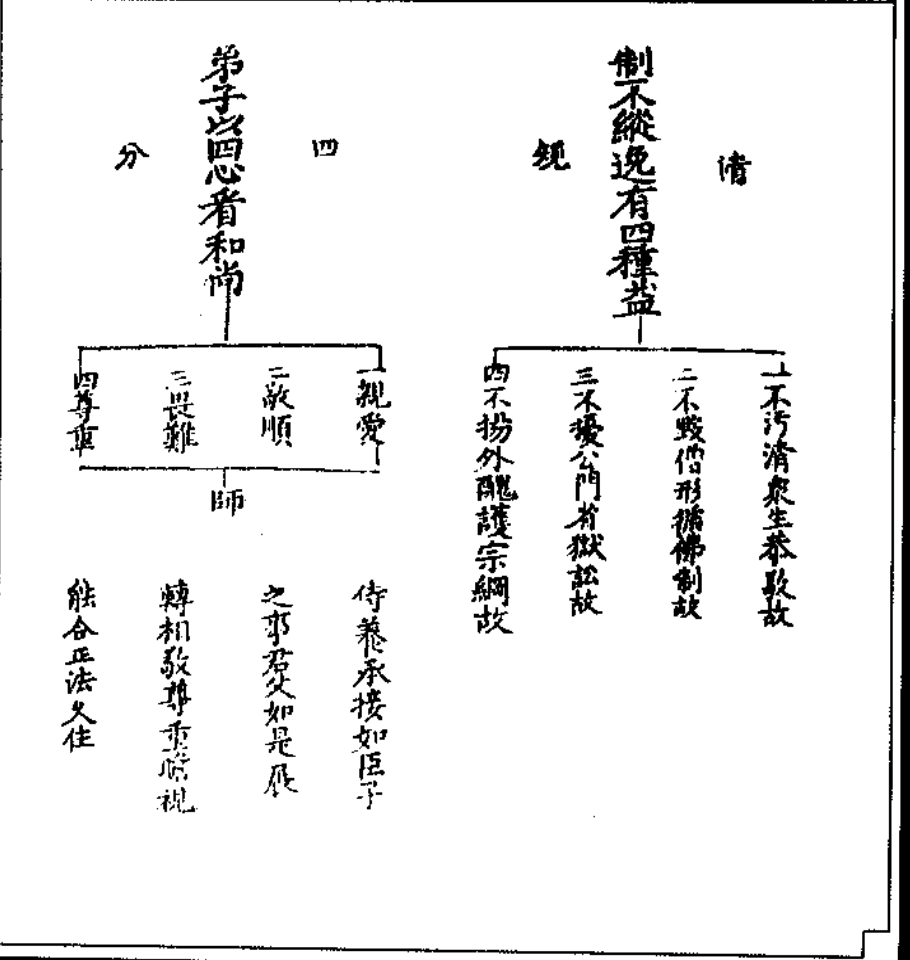 清規
制不縱逸有四種益
一不污清衆生恭敬故
二不毀僧形循佛制故
三不擾公門省獄訟故
四不揚外醜護宗綱故
四分
弟子以四心看和尚
一親愛
二敬順
三畏難
四尊重
師
侍養承接如臣子
之事君父如是展
轉相敬尊重瞻視
能令正法久住